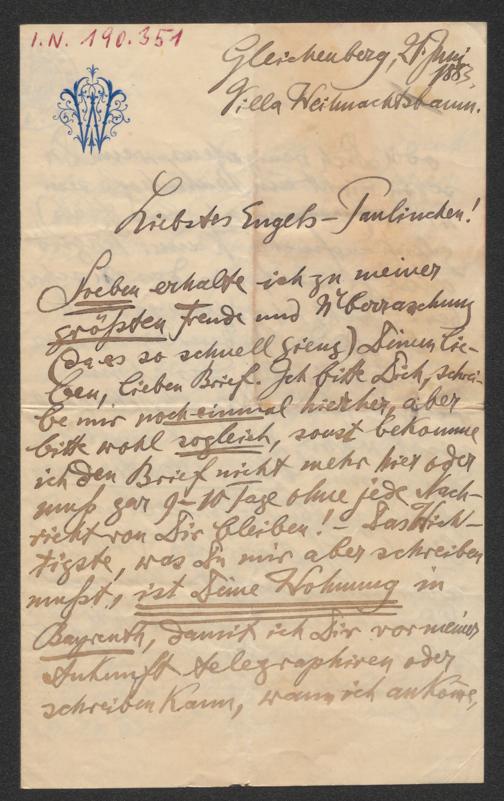 I.N. 190.351
Gleichenberg, 21. Juni
1883.
Villa Weihnachtsbaum.
Liebstes Engels-Paulinchen!
Soeben erhalte ich zu meiner
größten Freude und Überraschung
(da es so schnell gieng) Deinen lie-
ben, lieben Brief. Ich bitte Dich, schrei-
be mir noch einmal hierher, aber
bitte wohl sogleich, sonst bekomme
ich den Brief nicht mehr hier oder
muß gar 9-10 Tage ohne jede Nach-
richt von Dir bleiben! - Das Wich-
tigste, was Du mir aber schreiben
mußt, ist Deine Wohnung in
Bayreuth, damit ich Dir vor meiner
Ankunft telegraphiren oder
schreiben kann, wann ich ankom̅e,